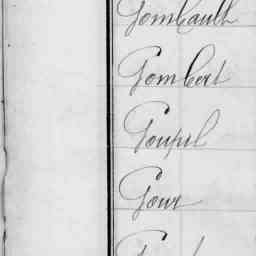 Gombault
Gombert
Goupil
Gour